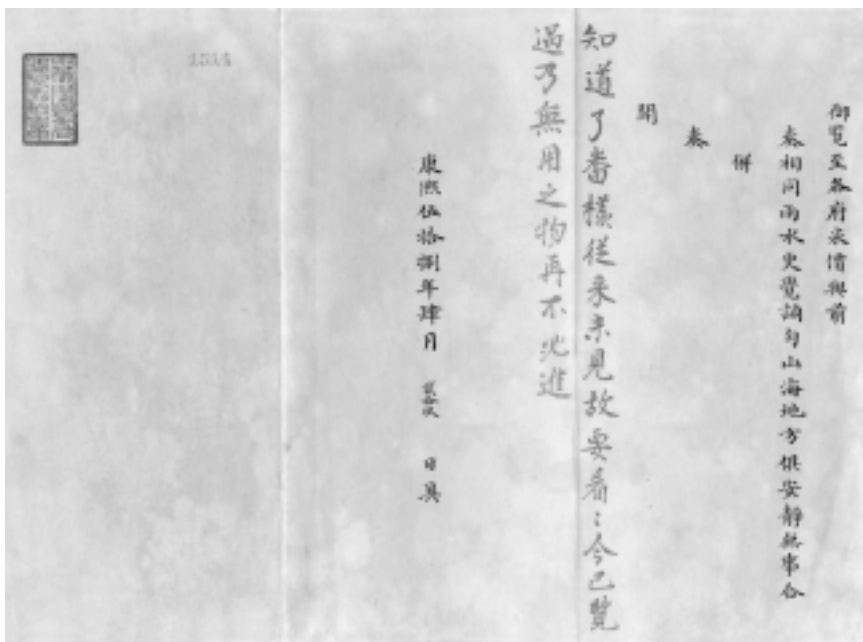 御覧至各府米價與前
奏相同雨水更覺調勻山海地方俱安靜無事合
併
奏
聞
知道了番檨從來未見故要看〻今已覽
過乃無用之物再不必進
康熙伍拾捌年肆月 貳拾玖 日具
1514